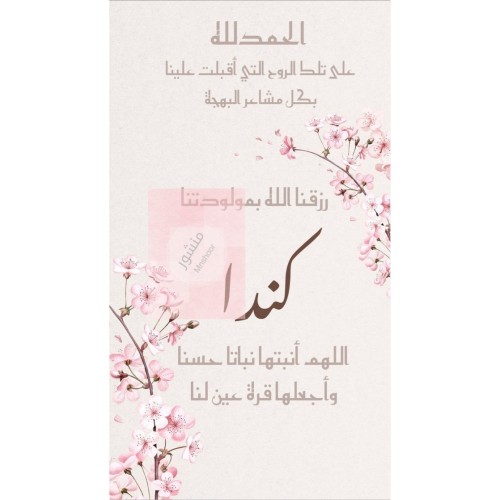 الحمدلله
على تلك الروح التي أقبلت علينا
بكل مشاعر البهجة
رزقنا الله بمولودتنا
منشور
Mnshoor
كندا
اللهم أنبتها نباتا حسنا
وأجعلها قرة عين لنا